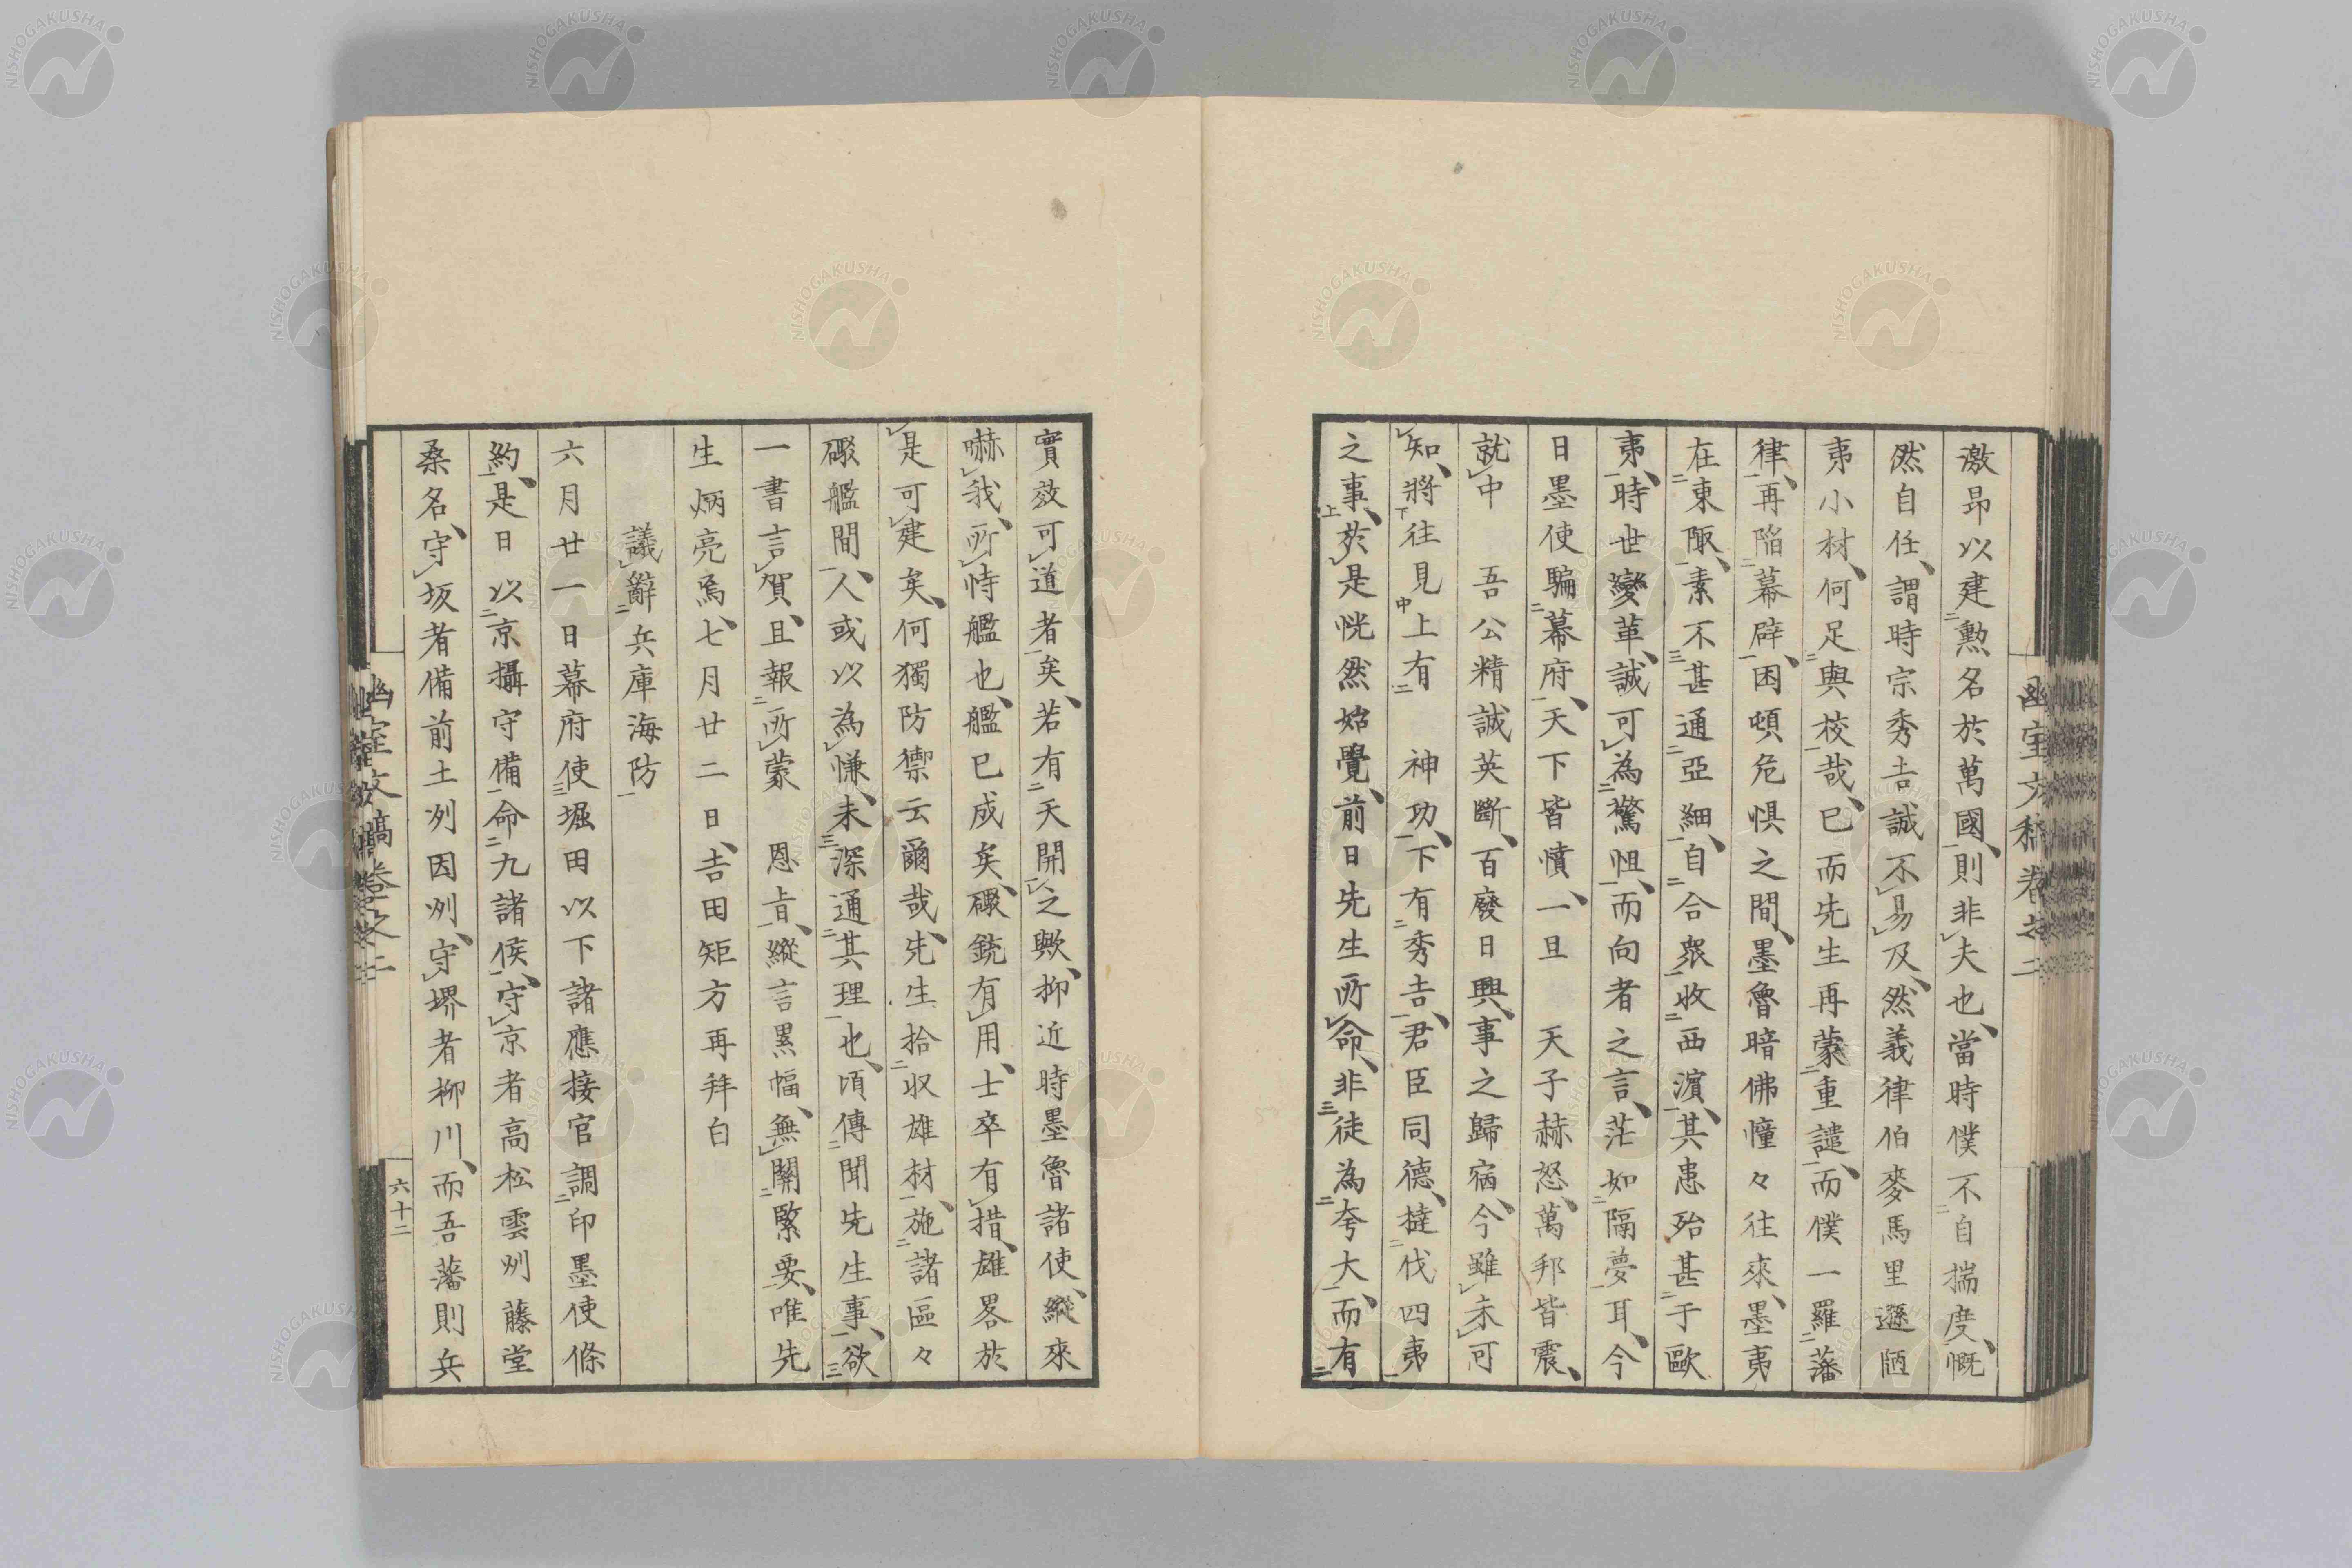 激昂以建勲名於萬國、則非夫也、當時僕不自揣度、慨
然自任、謂時宗秀吉誠不易及、然義律伯麥馬里遜陋
夷小材、何足與校哉、已而先生再蒙重譴、而僕一羅藩
律、再陷幕辟、困頓危惧之間、墨魯暗佛憧々往來、墨夷
在東陬、素不甚通亞細、自合衆收西濵、其患殆甚于歐
夷、時世變革、誠可為驚怛、而向者之言、茫如隔夢耳、今
日墨使騙幕府、天下皆憤、一旦 天子赫怒、萬邦皆震、
就中 吾公精誠英斷、百廢日興、事之歸宿、今雖未可
知、將往見上有 神功、下有秀吉、君臣同德、撻伐四夷
之事、於是恍然始覺、前日先生所命、非徒為夸大、而有
幽室文稿卷之二
實效可道者矣、若有天開之歟、抑近時墨魯諸使、縱來
嚇我、所恃艦也、艦已成矣、礮銃有用、士卒有措、雄畧於
是可建矣、何獨防禦云爾哉、先生拾収雄材、施諸區々
礮艦間、人或以為慊、未深通其理也、頃傳聞先生事、欲
一書言賀、且報所蒙 恩旨、縱言累幅、無關緊要、唯先
生炳亮焉、七月廿二日、吉田矩方再拜白
議辭兵庫海防
六月廿一日幕府使堀田以下諸應接官調印墨使條
約、是日以京攝守備命九諸侯、守京者高松雲州藤堂
桑名、守坂者備前土州因州、守堺者柳川、而吾藩則兵
幽室文稿卷之二
六十二
NISHOGAKUSHA